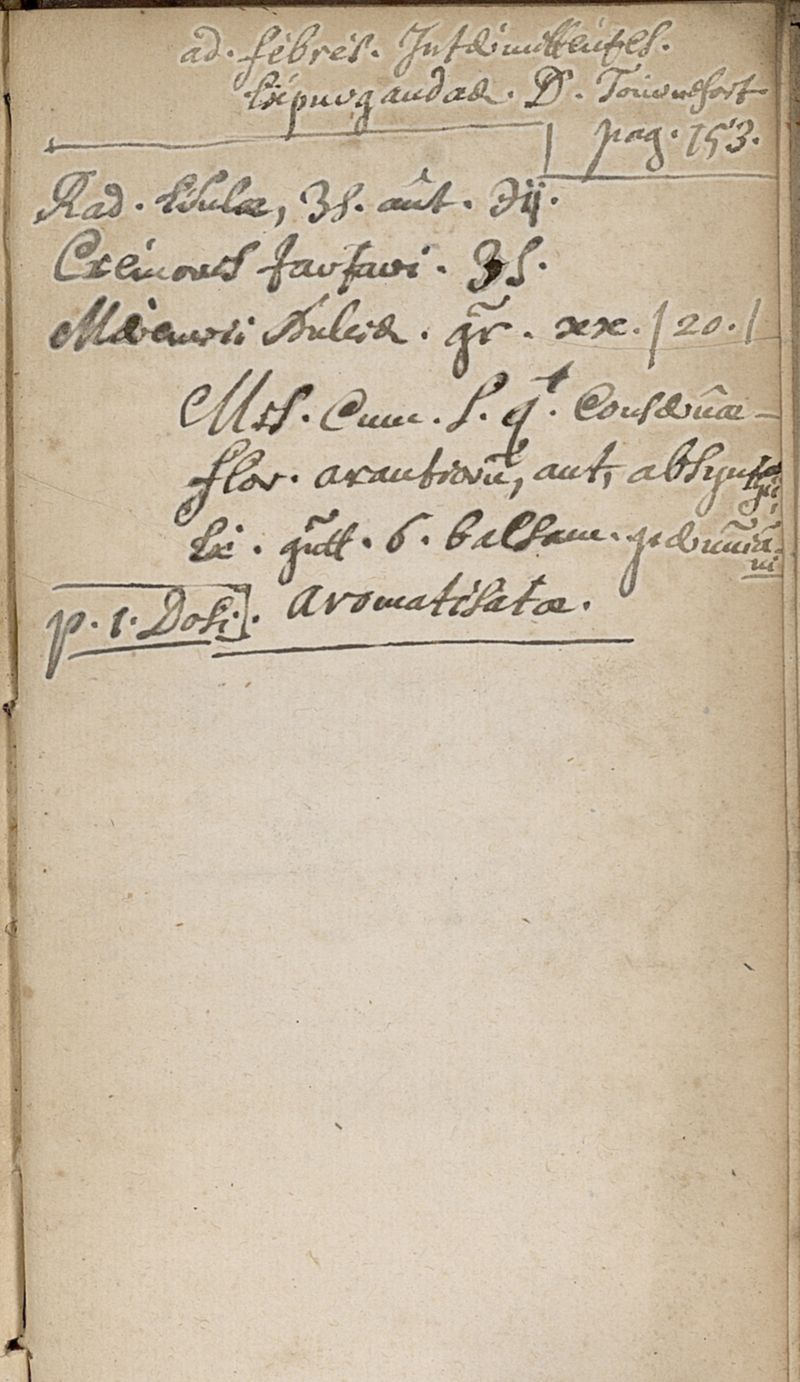 ad. febres. Intermittentes.
Expurgandae. D. Tournefort
pag. 153.
Rad. Esulae, ʒſ. aut. ℈ij.
Cremoris tartari. ʒſ.
Mercurii Dulcis. gr̃. xx. / 20. /
Mss. Cum. ſ. qt. Conservae
flor. arantiorũ, aut, absynthii,
Ex. gutt. 6. balsam.
aromatisatae.
p. 1. Dosi.